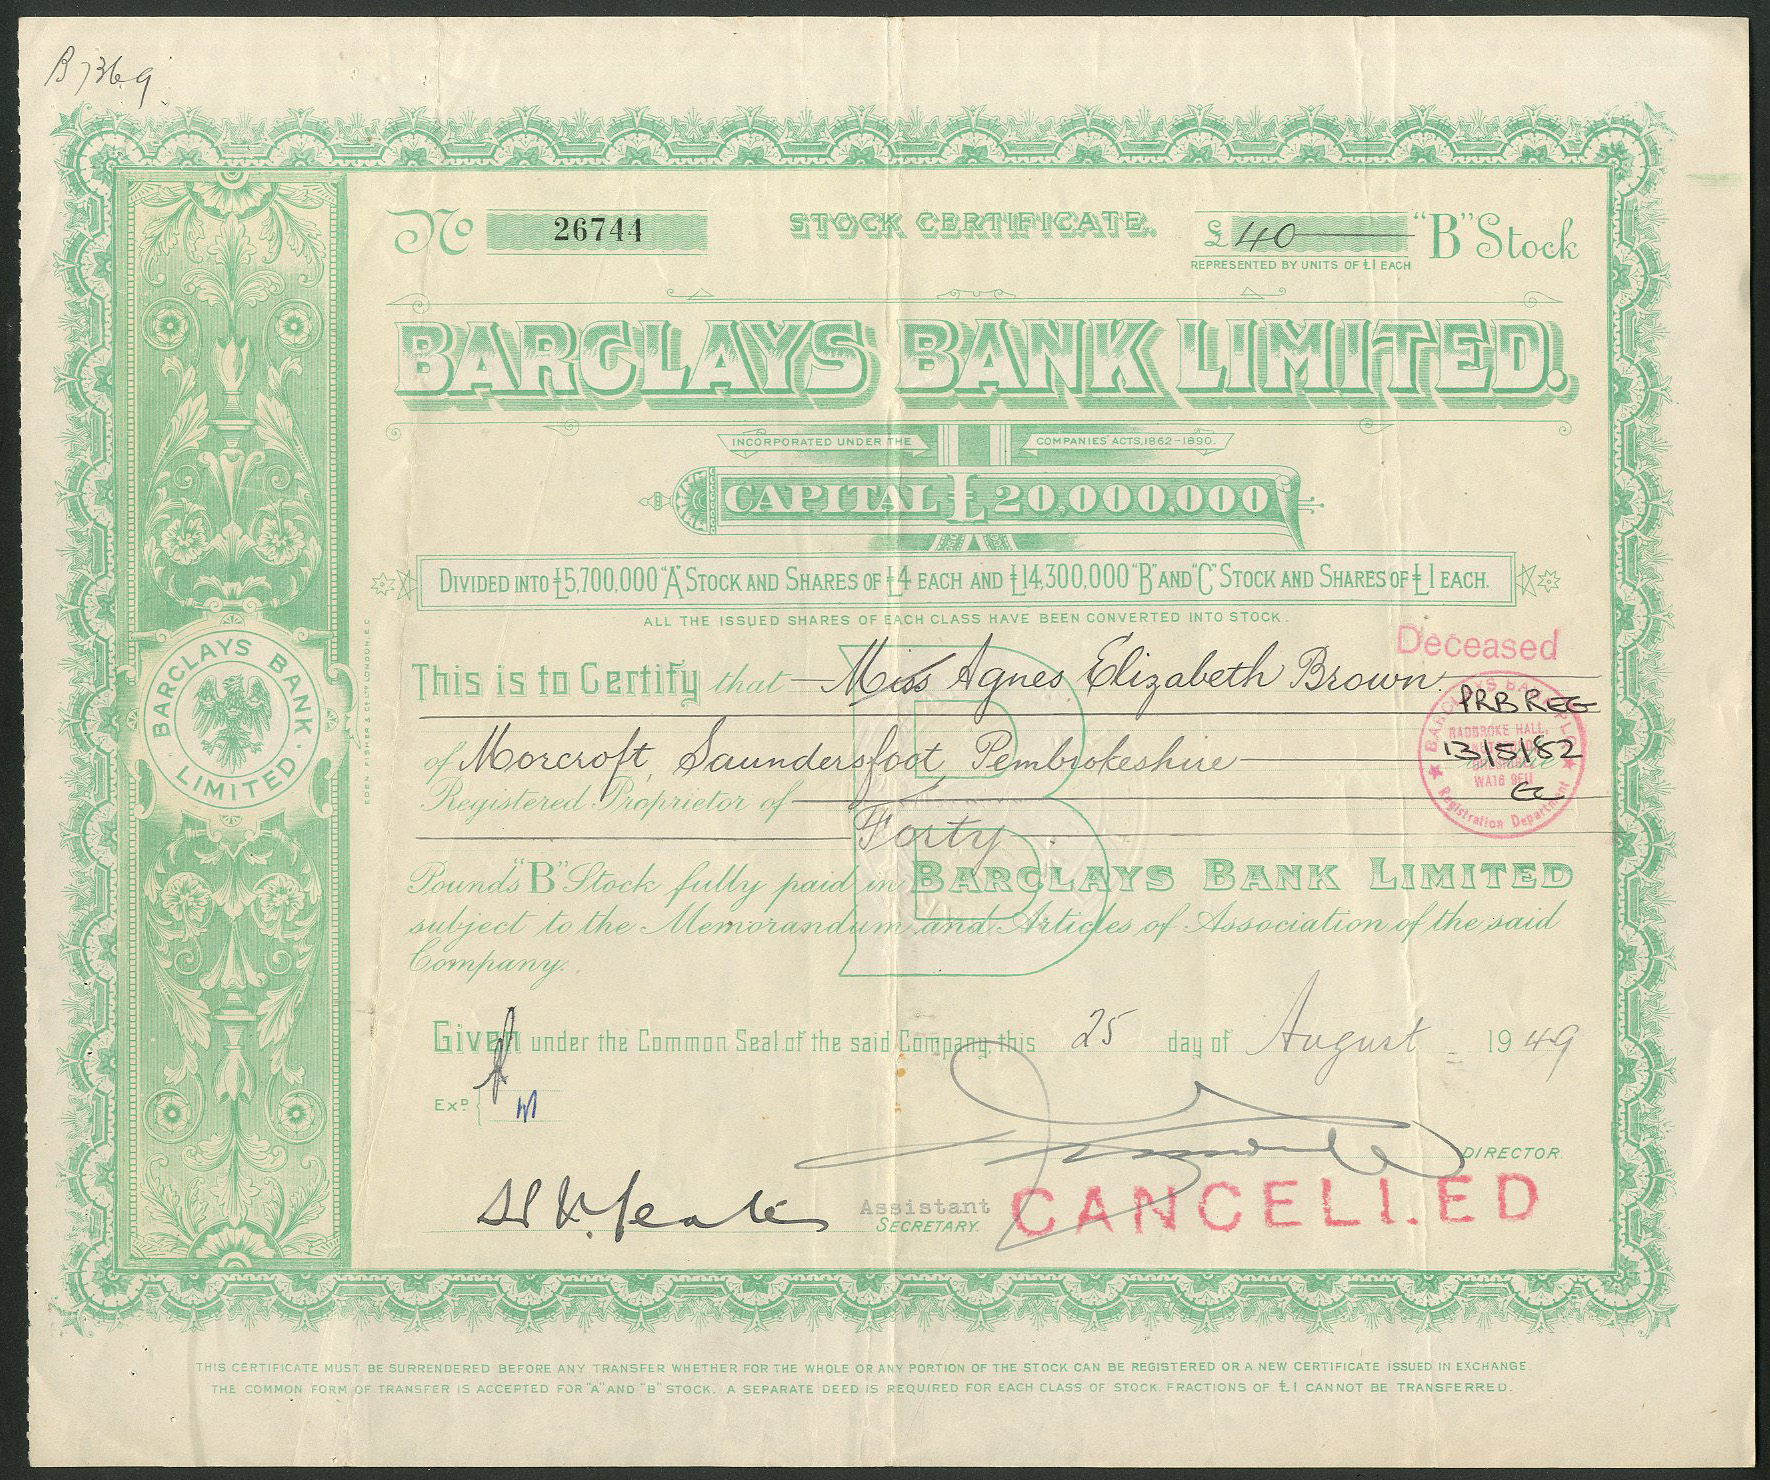 B7369
No 26744 STOCK CERTIFICATE. £ 40 "B" Stock
REPRESENTED BY UNITS OF £1 EACH
BARCLAYS BANK LIMITED.
INCORPORATED UNDER THE COMPANIES' ACTS, 1862-1890.
CAPITAL £20,000,000
DIVIDED INTO £5,700,000 "A" STOCK AND SHARES OF £4 EACH AND £14,300,000 "B" AND "C" STOCK AND SHARES OF £1 EACH.
ALL THE ISSUED SHARES OF EACH CLASS HAVE BEEN CONVERTED INTO STOCK.
Deceased
This is to Certify that Miss Agnes Elizabeth Brown
PRB REG
of Morcroft, Saundersfoot, Pembrokeshire
13/5/82
Registered Proprietor of
Forty
Pounds "B" Stock fully paid in BARCLAYS BANK LIMITED
subject to the Memorandum and Articles of Association of the said
Company.
BARCLAYS BANK PLC
RADBROKE HALL,
WA16 9EU
Registration Department
B
BARCLAYS BANK LIMITED
EDEN FISHER & CO LTD LONDON, E.C.
Given under the Common Seal of the said Company, this 25 day of August 1949
EXD.
DIRECTOR
Assistant
SECRETARY.
CANCELLED
THIS CERTIFICATE MUST BE SURRENDERED BEFORE ANY TRANSFER WHETHER FOR THE WHOLE OR ANY PORTION OF THE STOCK CAN BE REGISTERED OR A NEW CERTIFICATE ISSUED IN EXCHANGE.
THE COMMON FORM OF TRANSFER IS ACCEPTED FOR "A" AND "B" STOCK. A SEPARATE DEED IS REQUIRED FOR EACH CLASS OF STOCK. FRACTIONS OF £1 CANNOT BE TRANSFERRED.